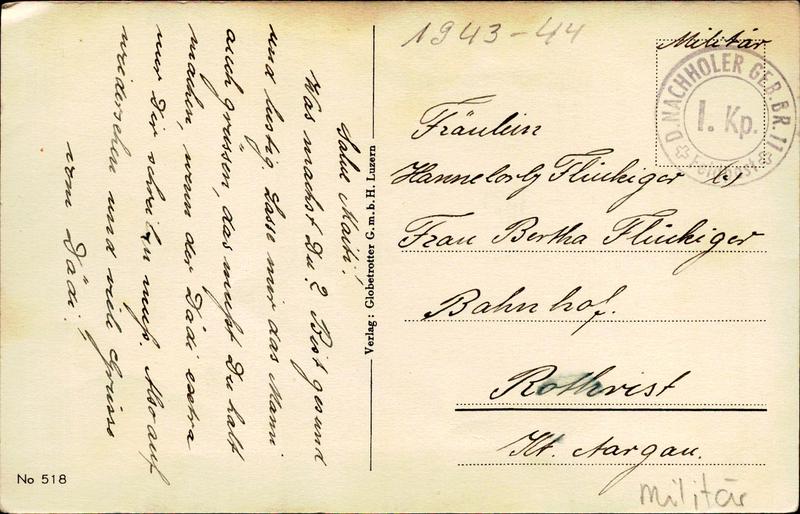 Salut Maiti!
Was machst Du? Bist gesund
und lustig. Lasse mir das Mami
auch grüssen, das musst Du halt
machen, wenn der Dädi extra
nur Dir schreiben muss. Also auf
wiedersehen und viele Grüsse
vom Dädi.
Verlag: Globetrotter G.m.b.H. Luzern
No 518
1943-44
Militär
D. NACHHOLER GEB. BR. 11
I. Kp.
Feldpost
Fräulein
Hannelorly Flückiger b/
Frau Bertha Flückiger
Bahnhof.
Rothrist
Kt. Aargau.
Militär